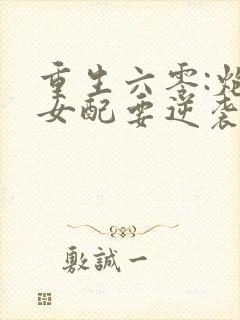 重生六零:炮
女配要逆袭
敷誠一